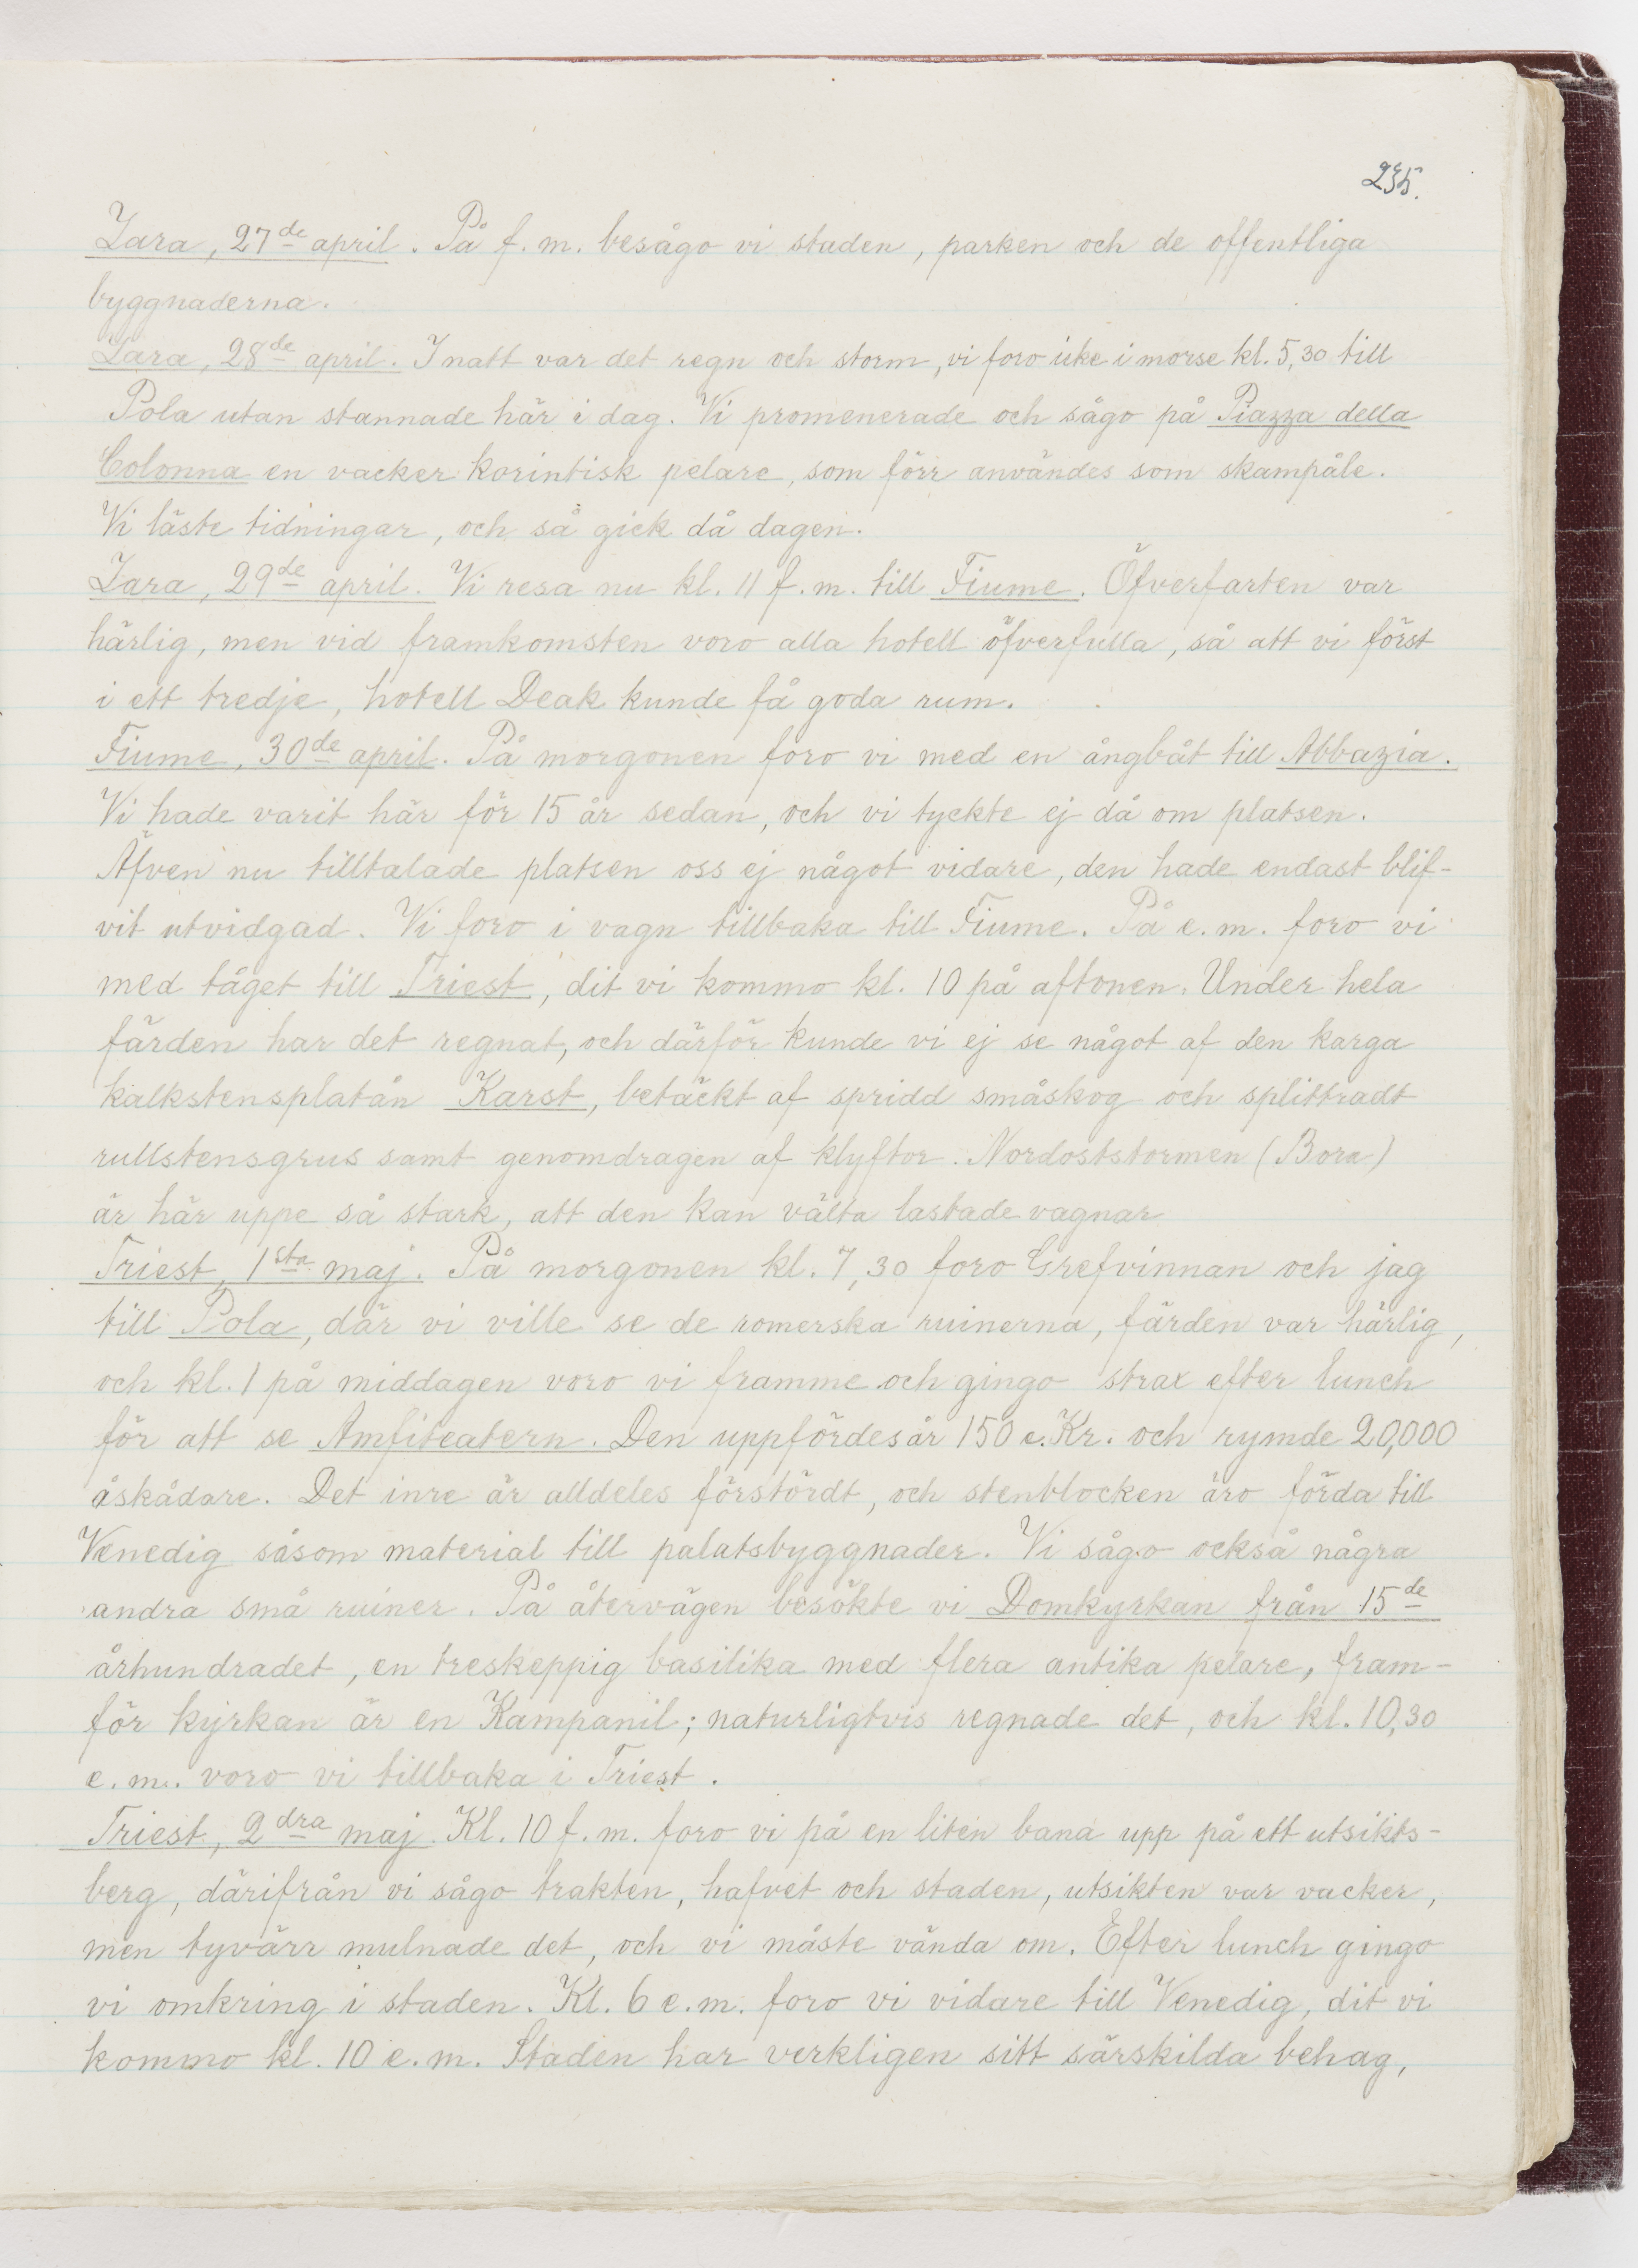 235.
Zara, 27de april. På f.m. besågo vi staden, parken och de offentliga
byggnaderna.
Zara, 28de april. I natt var det regn och storm, vi foro icke i morse kl. 5,30 till
Pola utan stannade här i dag. Vi promenerade och sågo på Piazza della
Colonna en vacker korintisk pelare, som förr användes som skampåle.
Vi läste tidningar, och så gick då dagen.
Zara, 29de april. Vi resa nu kl. 11 f.m. till Fiume. Öfverfarten var
härlig, men vid framkomsten voro alla hotell öfverfulla, så att vi först
i ett tredje, hotell Deak kunde få goda rum.
Fiume, 30de april. På morgonen foro vi med en ångbåt till Abbazia.
Vi hade varit här för 15 år sedan, och vi tyckte ej då om platsen.
Äfven nu tilltalade platsen oss ej något vidare, den hade endast blif-
vit utvidgad. Vi foro i vagn tillbaka till Fiume. På e.m. foro vi
med tåget till Triest, dit vi kommo kl. 10 på aftonen. Under hela
färden har det regnat, och därför kunde vi ej se något af den karga
kalkstensplatån Karst, betäckt af spridd småskog och splittradt
rullstensgrus samt genomdragen af klyftor. Nordoststormen (Bora)
är här uppe så stark, att den kan välta lastade vagnar
Triest, 1sta maj. På morgonen kl. 7,30 foro Grefvinnan och jag
till Pola, där vi ville se de romerska ruinerna, färden var härlig,
och kl. 1 på middagen voro vi framme och gingo strax efter lunch
för att se Amfiteatern. Den uppfördes år 150 e.Kr. och rymde 20,000
åskådare. Det inre är alldeles förstördt, och stenblocken äro förda till
Venedig såsom material till palatsbyggnader. Vi sågo också några
andra små ruiner. På återvägen besökte vi Domkyrkan från 15de
århundradet, en treskeppig basilika med flera antika pelare, fram-
för kyrkan är en Kampanil; naturligtvis regnade det, och kl. 10,30
e.m. voro vi tillbaka i Triest.
Triest, 2dra maj. Kl. 10 f.m. foro vi på en liten bana upp på ett utsikts-
berg, därifrån vi sågo trakten, hafvet och staden, utsikten var vacker,
men tyvärr mulnade det, och vi måste vända om. Efter lunch gingo
vi omkring i staden. Kl. 6 e.m. foro vi vidare till Venedig, dit vi
kommo kl. 10 e.m. Staden har verkligen sitt särskilda behag,